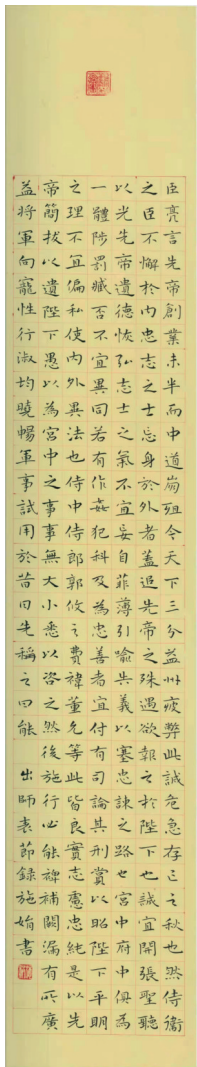 臣亮言先帝創業未半而中道崩殂今天下三分益州疲弊此誠危急存亡之秋也然侍衛
之臣不懈於內忠志之士忘身於外者蓋追先帝之殊遇欲報之於陛下也誠宜開張聖聽
以光先帝遺德恢弘志士之氣不宜妄自菲薄引喻失義以塞忠諫之路也宮中府中俱為
一體陟罰臧否不宜異同若有作姦犯科及為忠善者宜付有司論其刑賞以昭陛下平明
之理不宜偏私使內外異法也侍中侍郎郭攸之費禕董允等此皆良實志慮忠純是以先
帝簡拔以遺陛下愚以為宮中之事事無大小悉以咨之然後施行必能裨補闕漏有所廣
益將軍向寵性行淑均曉暢軍事試用於昔日先稱之曰能 出師表節録施婧書